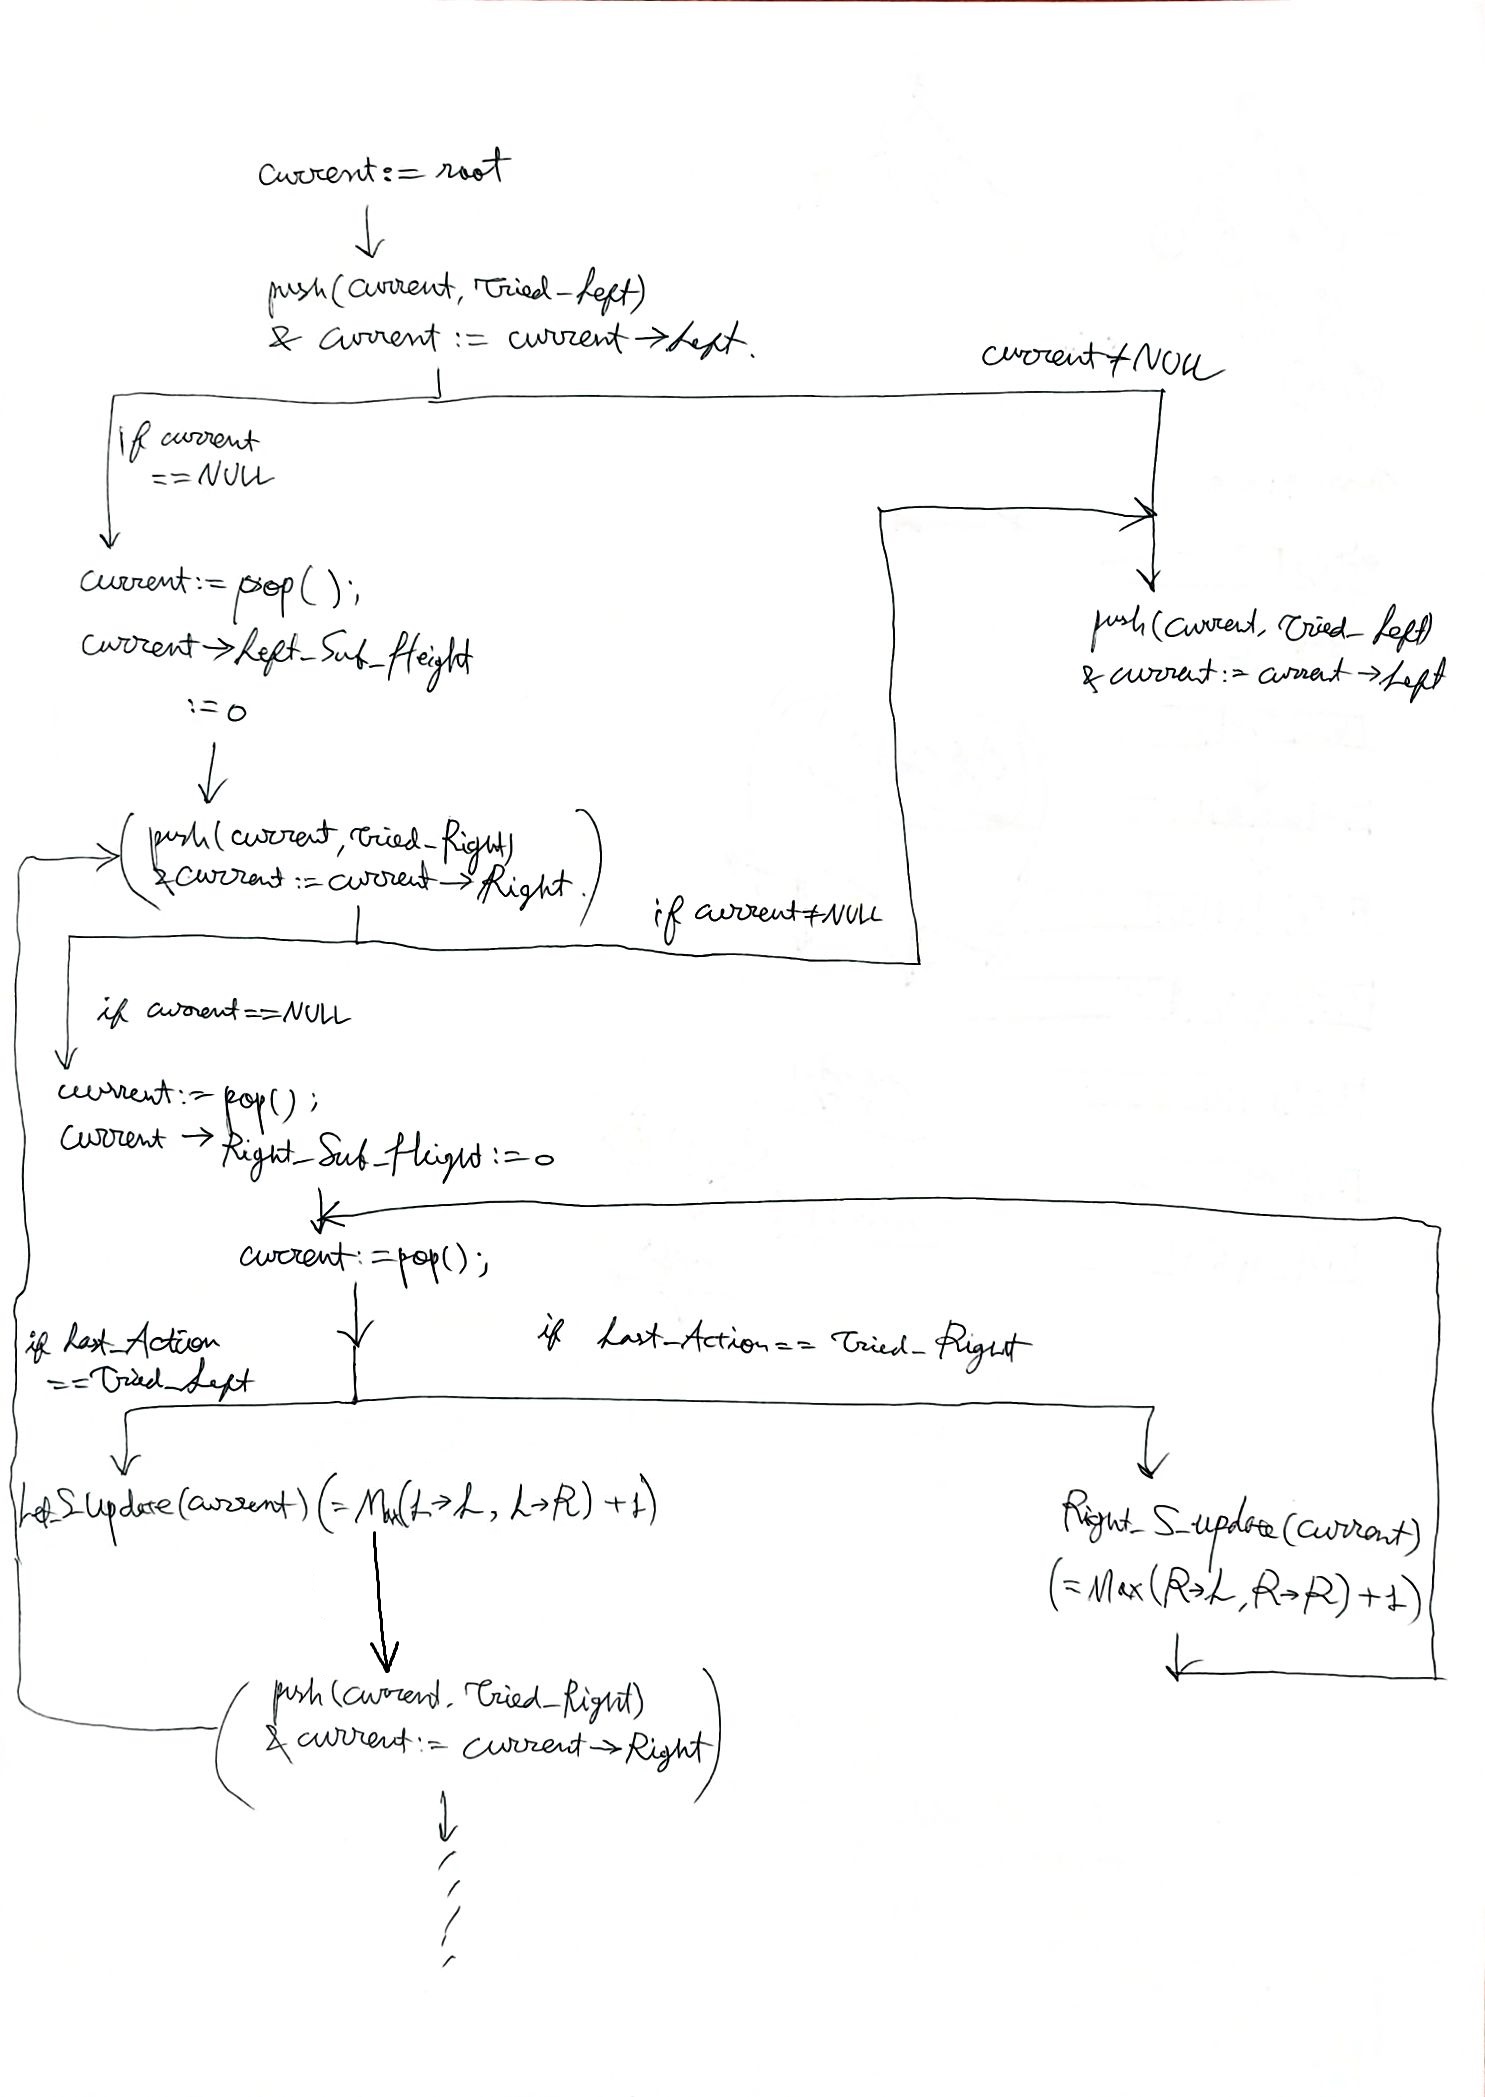 current := root
push(current, Tried_Left)
& current := current → Left.
current ≠ NULL
if current
== NULL
current := pop();
current → Left_Sub_Height
:= 0
push(current, Tried_Left)
& current := current → Left
(push(current, Tried_Right)
& current := current → Right.)
if current ≠ NULL
if current == NULL
current := pop();
current → Right_Sub_Height := 0
current := pop();
if Last_Action
== Tried_Left
if Last_Action == Tried_Right
Left_S_Update(current) (= Max(L→L, L→R) + 1)
Right_S_update(current)
(= Max(R→L, R→R) + 1)
(push(current, Tried_Right)
& current := current → Right)